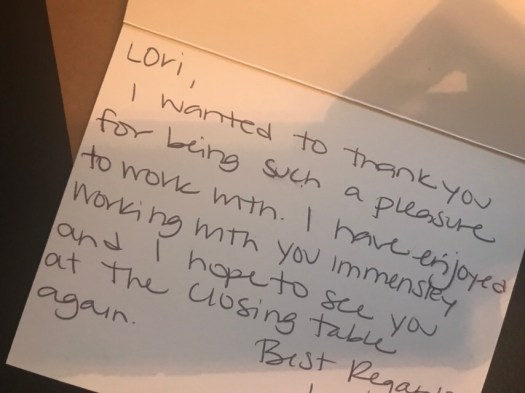 Lori,
I wanted to thank you
for being such a pleasure
to work with. I have enjoyed
working with you immensley
and I hope to see you
at the closing table
again.
Best Regar